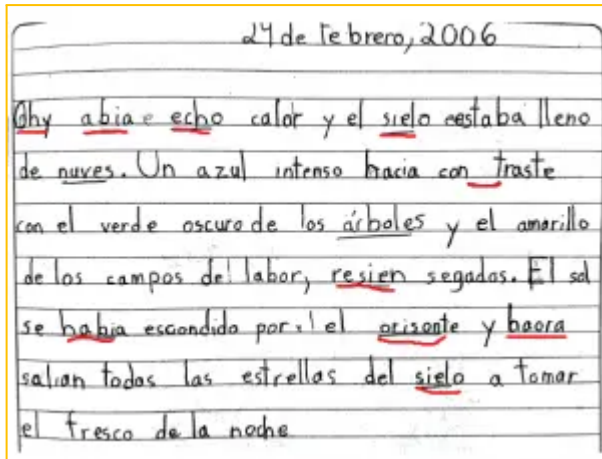 24 de febrero, 2006
Ohy abia e echo calor y el sielo eestaba lleno
de nuves. Un azul intenso hacia con traste
con el verde oscuro de los árboles y el amarillo
de los campos del labor, resien segados. El sol
se habia escondido por el orisonte y baora
salian todas las estrellas del sielo a tomar
el fresco de la noche